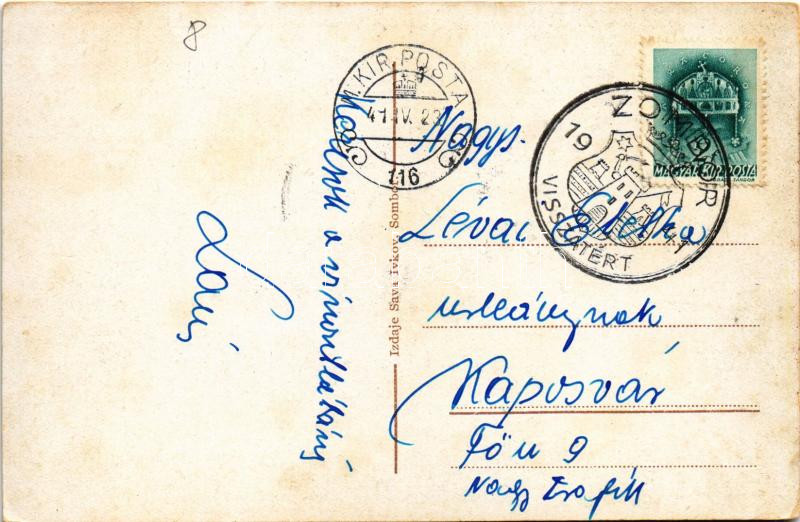 8
M. KIR. POSTA
41 IV. 23
116
ZOMBOR
19 41
VISSZATÉRT
MAGYAR KIR. POSTA
Izdaje Sava Ivkov, Sombor
Kedves a viszontlátásig
Laci
Nagys.
Lévai
urleánynak
Kaposvár
Fő u 9
Nagy